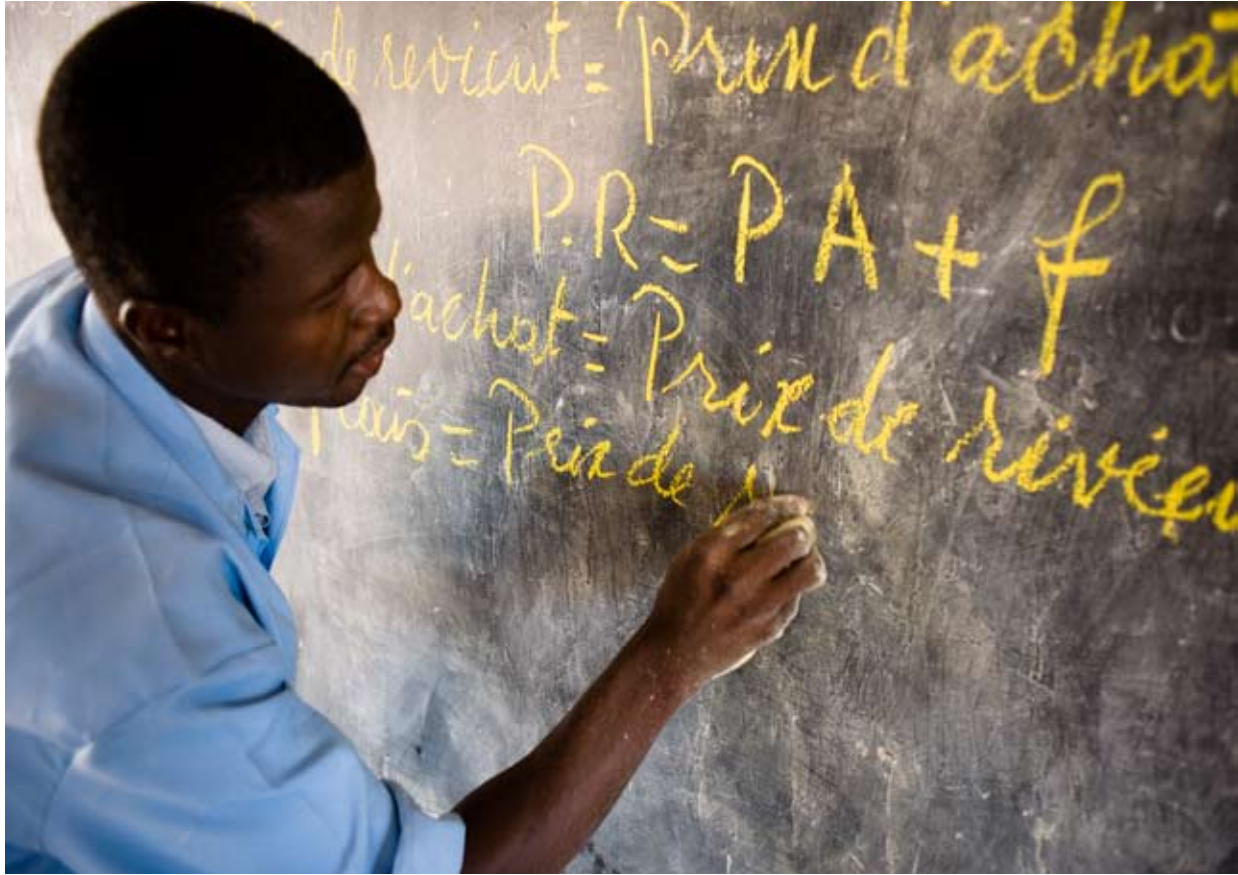 de revient = Prix d'achat
P.R = P A + f
d'achat = Prix de révien
frais = Prix de r